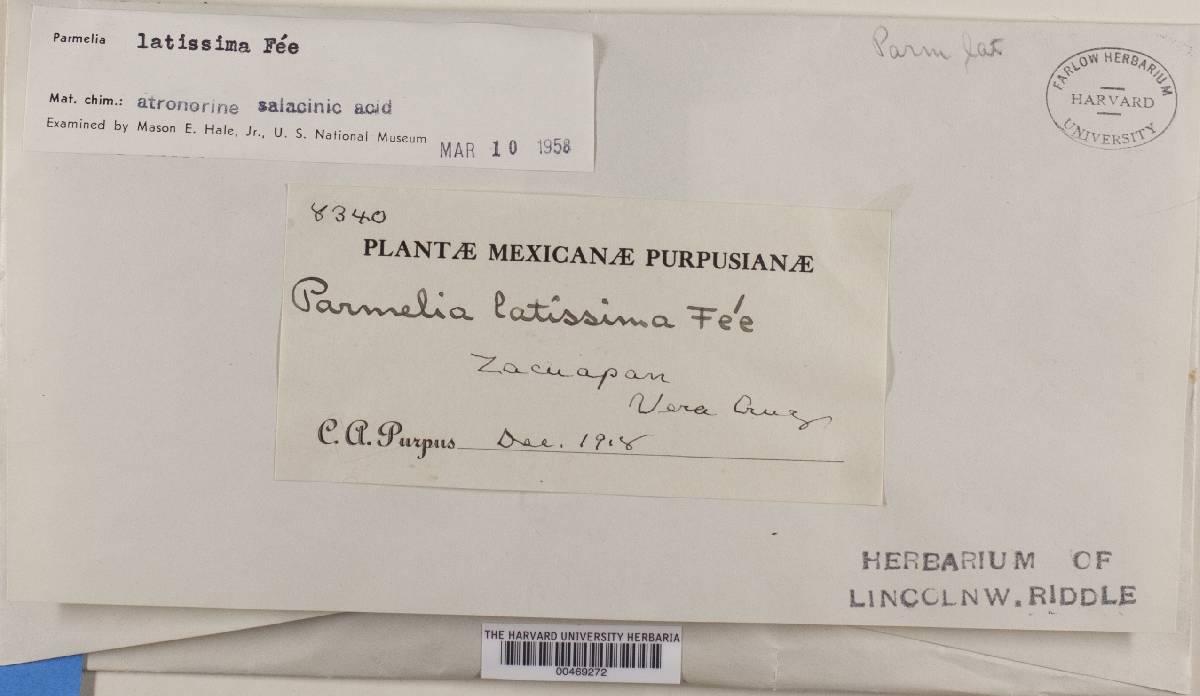 Parmelia latissima Fée
Mat. chim.: atronorine salacinic acid
Examined by Mason E. Hale, Jr., U. S. National Museum
MAR 10 1958
Parm lat
FARLOW HERBARIUM
HARVARD
UNIVERSITY
8340
PLANTÆ MEXICANÆ PURPUSIANÆ
Parmelia latissima Fée
Zacuapan
Vera Cruz
C. A. Purpus Dec. 1918
HERBARIUM OF
LINCOLN W. RIDDLE
THE HARVARD UNIVERSITY HERBARIA
00469272